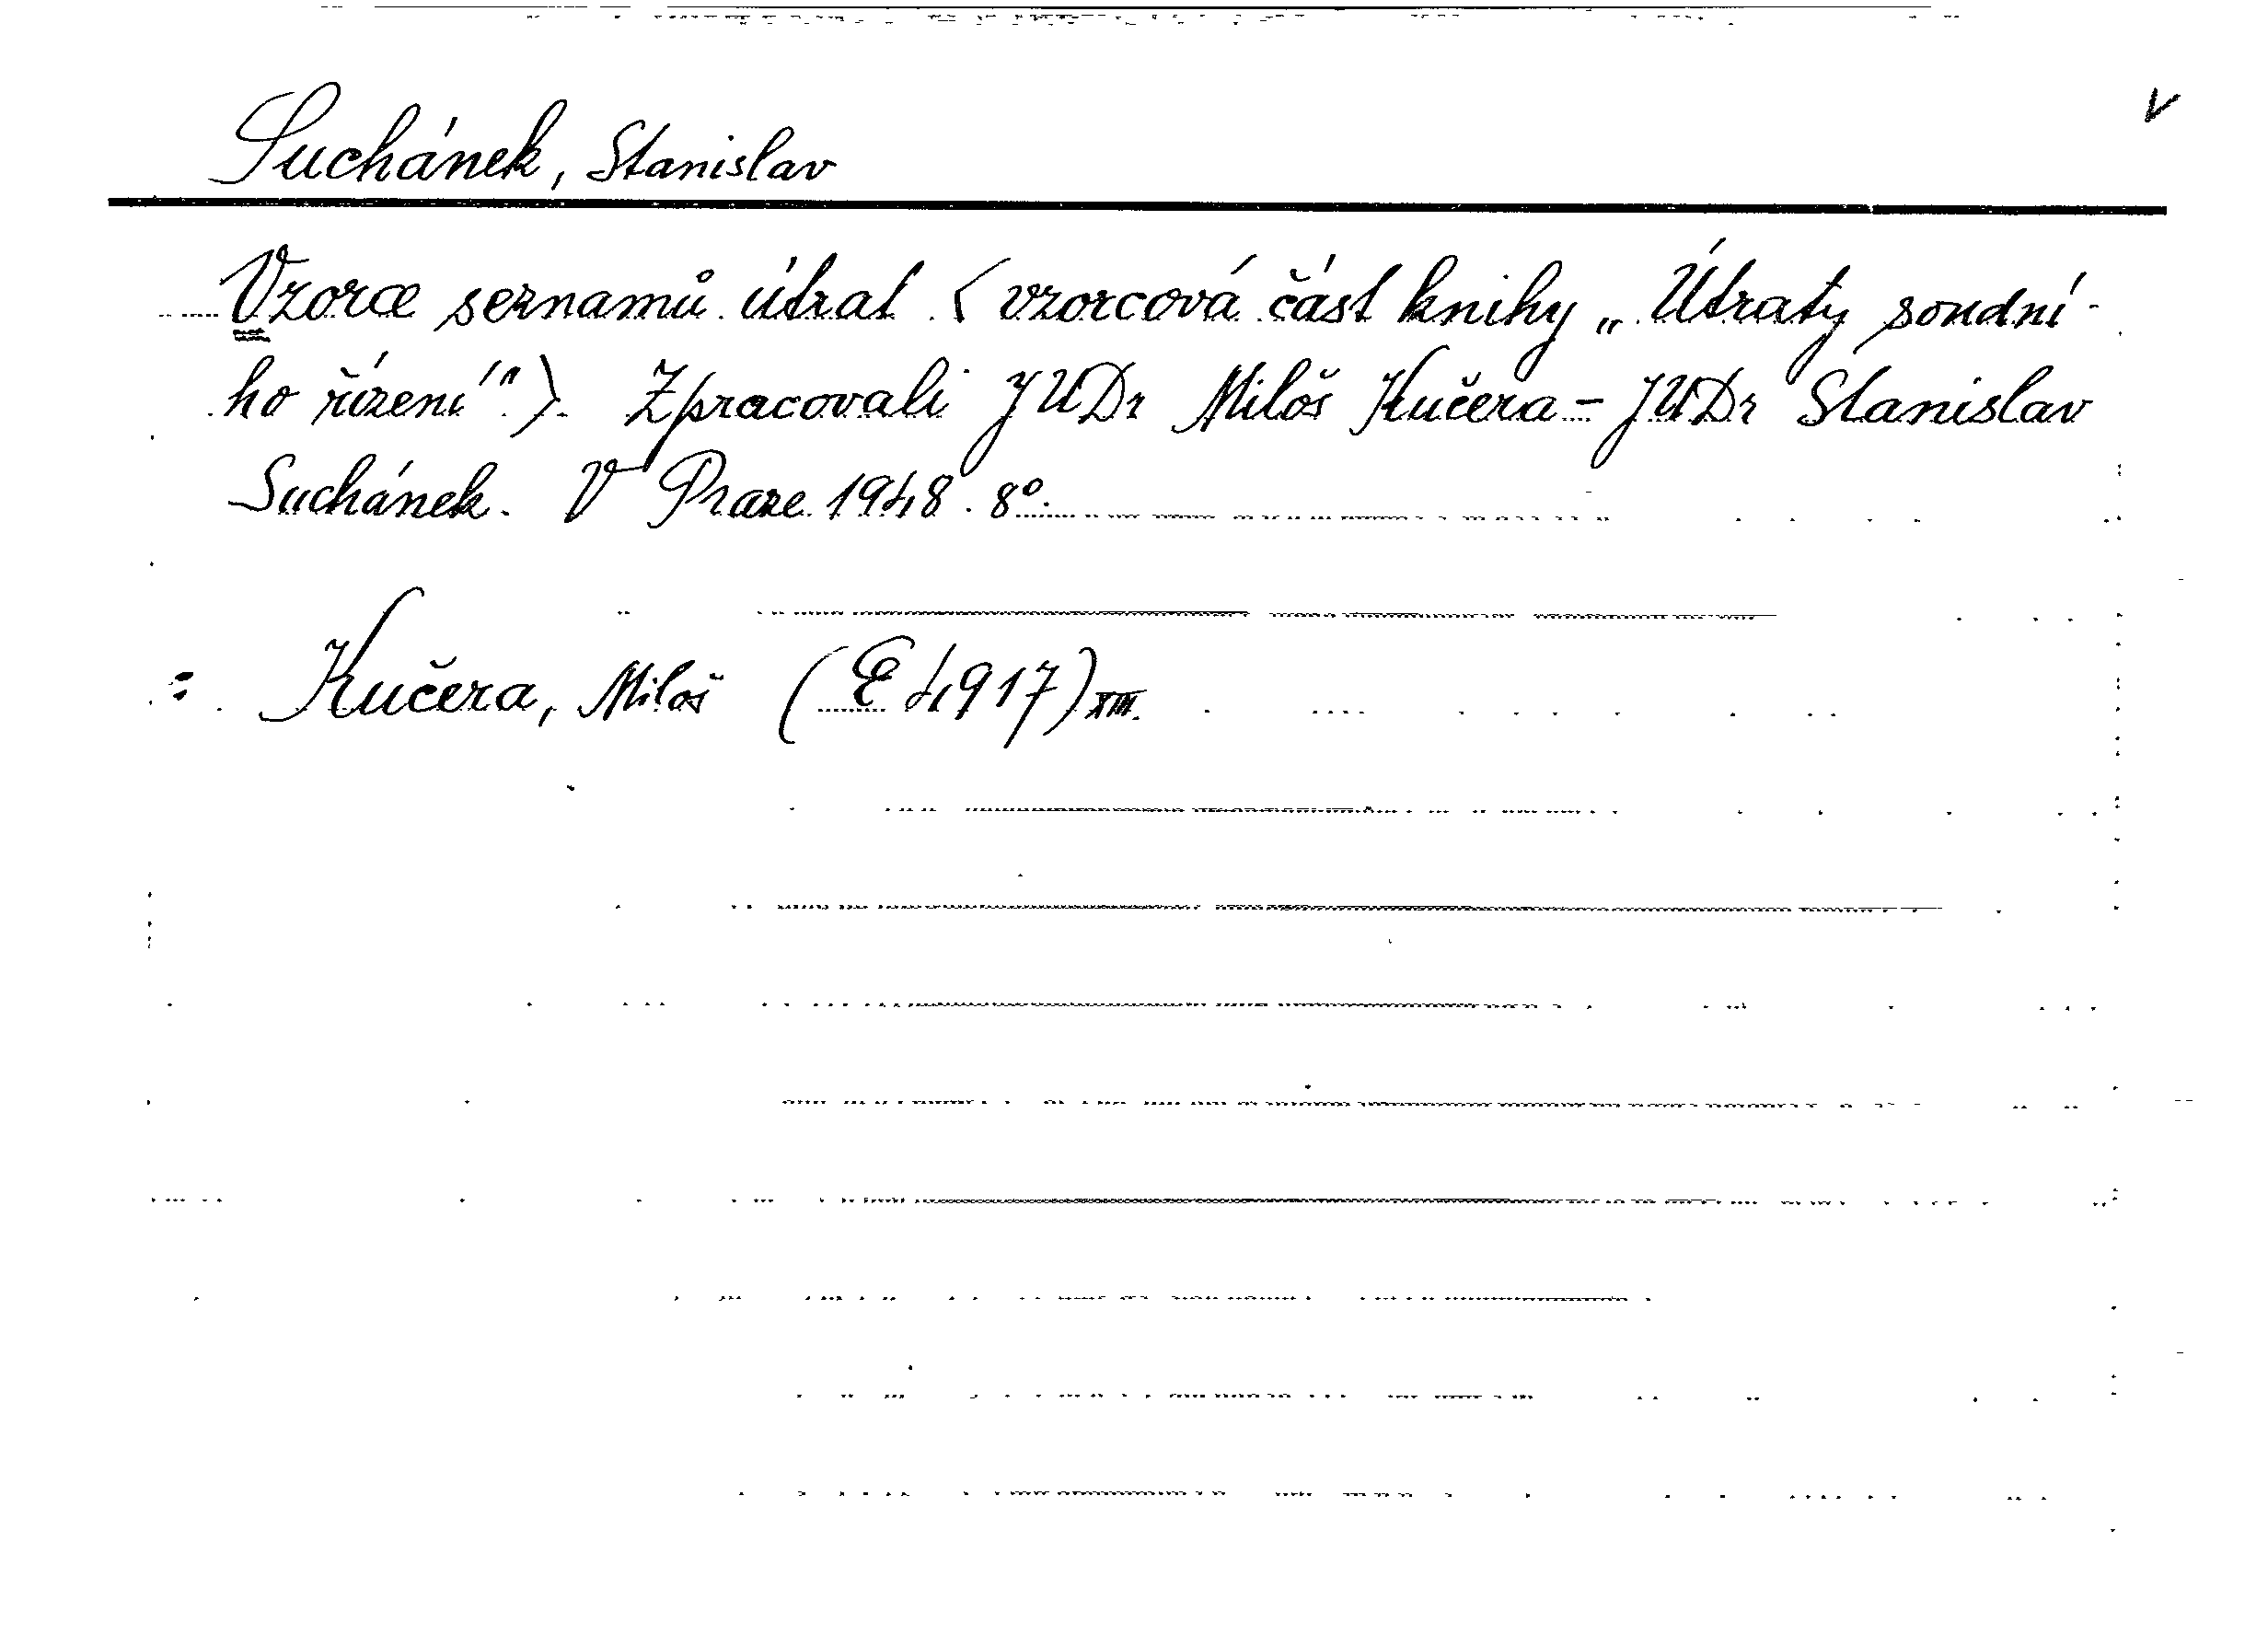 Suchánek, Stanislav
V
Vzorce seznamů útrat (vzorcová část knihy „Útraty soudní-
ho řízení“). Zpracovali JUDr Miloš Kučera - JUDr Stanislav
Suchánek. V Praze 1948. 8°.
= Kučera, Miloš (E 4917) XIII.